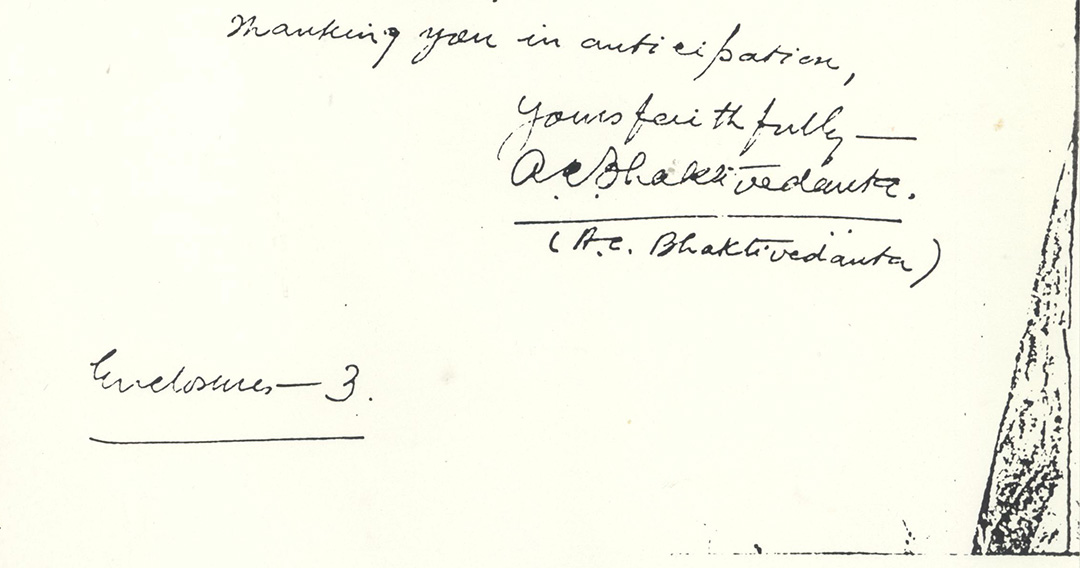 Thanking you in anticipation,
Yours faithfully —
A.C. Bhaktivedanta.
(A.C. Bhaktivedanta)
Enclosures — 3.